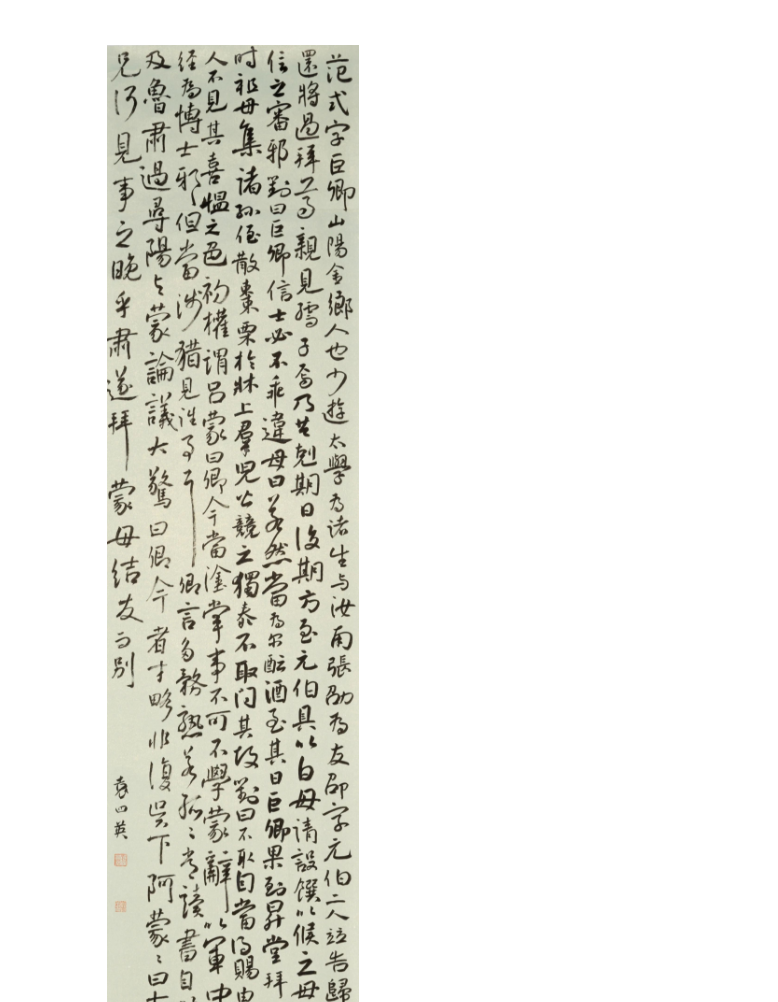 范式字巨卿山陽金鄉人也少遊太學為诸生与汝南張劭為友劭字元伯二人竝告歸
還將過拜尊親見孺子焉乃共剋期日後期方至元伯具以白母請設饌以候之母
信之審邪對曰巨卿信士必不乖違母曰若然當為尔醖酒至其日巨卿果到昇堂拜
时祖母集諸孙侄散棗栗於牀上羣兒皆競之獨泰不取问其故對曰不取自當得賜由
人不見其喜愠之色初權謂吕蒙曰卿今當塗掌事不可不學蒙辭以軍中
经為博士邪但當涉猎見往事耳卿言多務熟若孤〻常讀書自以
及魯肅過尋陽与蒙論議大驚曰卿今者才略非復吳下阿蒙〻曰士
兄何見事之晚乎肅遂拜蒙母结友而别
袁四英